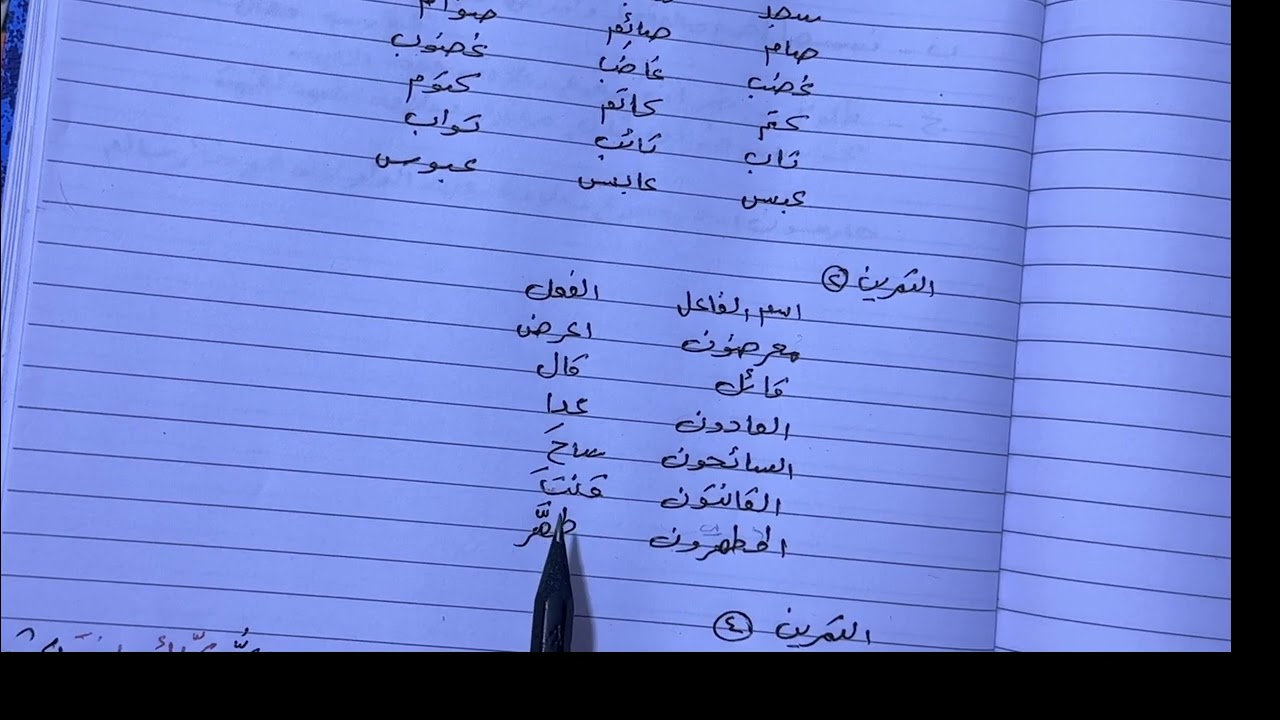 سجد
صام صائم صوام
غضب غاضب غضوب
كتم كاتم كتوم
تاب تائب تواب
عبس عابس عبوس
التمرين ٢
اسم الفاعل الفعل
معرضون اعرض
قائل قال
العادون عدا
السائحون ساحَ
القانتون قنتَ
المطهرون طهَّرَ
التمرين ٤